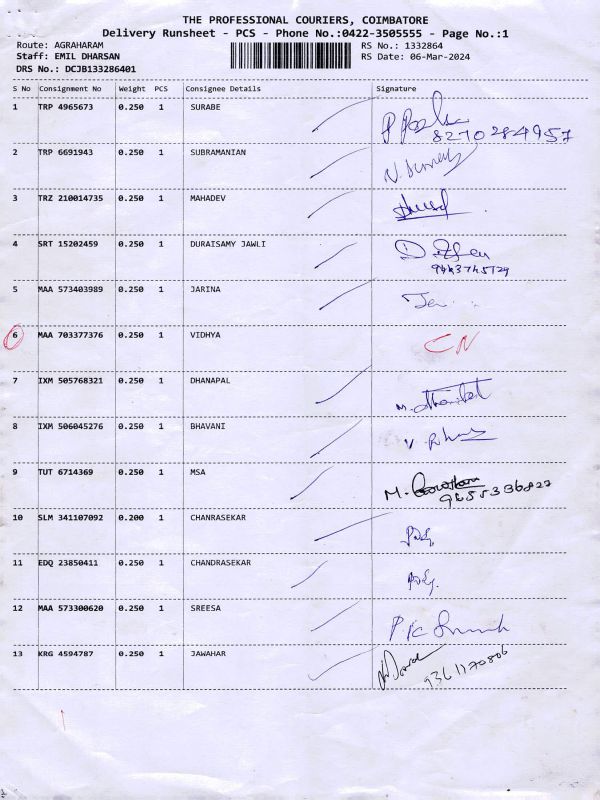 THE PROFESSIONAL COURIERS, COIMBATORE
Delivery Runsheet - PCS - Phone No.:0422-3505555 - Page No.:1
Route: AGRAHARAM RS No.: 1332864
Staff: EMIL DHARSAN RS Date: 06-Mar-2024
DRS No.: DCJB133286401
S No Consignment No Weight PCS Consignee Details Signature
1 TRP 4965673 0.250 1 SURABE
8270284957
2 TRP 6691943 0.250 1 SUBRAMANIAN
3 TRZ 210014735 0.250 1 MAHADEV
4 SRT 15202459 0.250 1 DURAISAMY JAWLI
5 MAA 573403989 0.250 1 JARINA
6 MAA 703377376 0.250 1 VIDHYA CN
7 IXM 505768321 0.250 1 DHANAPAL
8 IXM 506045276 0.250 1 BHAVANI
9 TUT 6714369 0.250 1 MSA
9655336827
10 SLM 341107092 0.200 1 CHANRASEKAR
11 EDQ 23850411 0.250 1 CHANDRASEKAR
12 MAA 573300620 0.250 1 SREESA
13 KRG 4594787 0.250 1 JAWAHAR
9361170806